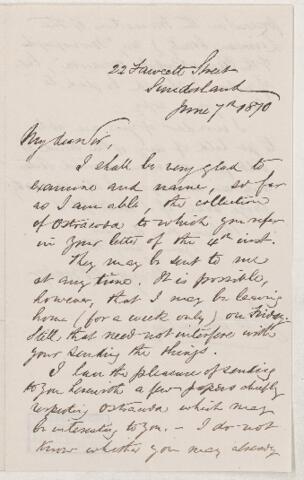 22 Fawcett Street
Sunderland
June 7th 1870
My dear Sir,
I shall be very glad to
examine and name, so far
as I am able, the collection
of Ostracoda to which you refer
in your letter of the 4th inst.
They may be sent to me
at any time. It is possible,
however, that I may be leaving
home (for a week only) on Friday.
Still, that need not interfere with
your sending the things.
I have the pleasure of sending
to you herewith a few papers chiefly
respecting Ostracoda which may
be interesting to you. – I do not
know whether you may already